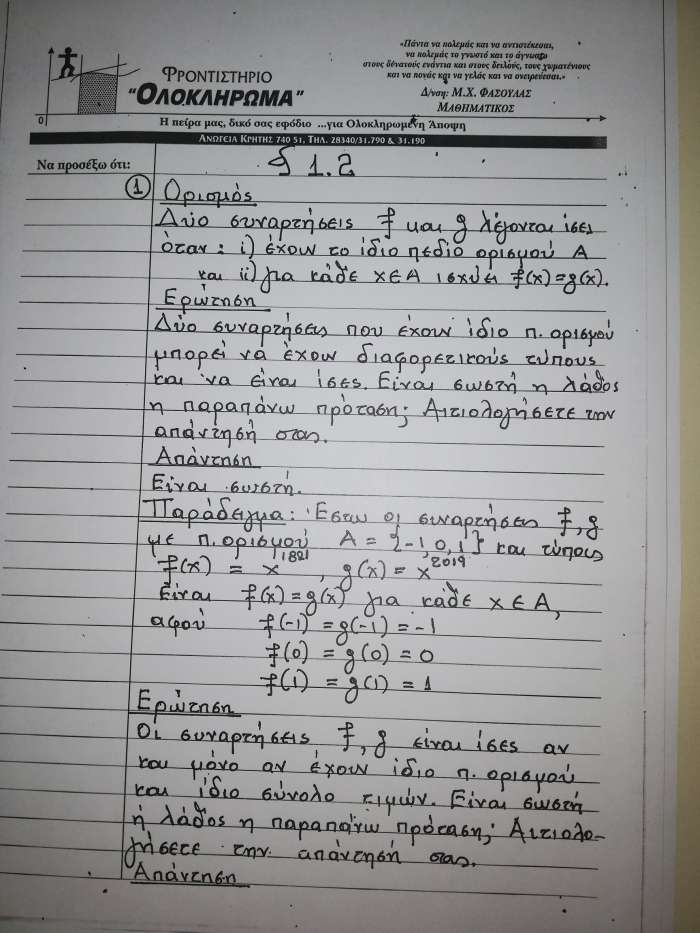 «Πάντα να πολεμάς και να αντιστέκεσαι,
να πολεμάς το γνωστό και το άγνωστο
στους δυνατούς ενάντια και στους δειλούς, τους χωματένιους
και να πονάς και να γελάς και να ονειρεύεσαι.»
ΦΡΟΝΤΙΣΤΗΡΙΟ
"ΟΛΟΚΛΗΡΩΜΑ"
Δ/νση: Μ.Χ. ΦΑΣΟΥΛΑΣ
ΜΑΘΗΜΑΤΙΚΟΣ
0
Η πείρα μας, δικό σας εφόδιο ...για Ολοκληρωμένη Άποψη
ΑΝΩΓΕΙΑ ΚΡΗΤΗΣ 740 51, ΤΗΛ. 28340/31.790 & 31.190
Να προσέξω ότι:
§ 1.2
① Ορισμός
Δύο συναρτήσεις f και g λέγονται ίσες
όταν: i) έχουν το ίδιο πεδίο ορισμού A
και ii) για κάθε x∈A ισχύει f(x)=g(x).
Ερώτηση
Δύο συναρτήσεις που έχουν ίδιο π. ορισμού
μπορεί να έχουν διαφορετικούς τύπους
και να είναι ίσες. Είναι σωστή η λάθος
η παραπάνω πρόταση; Αιτιολογήσετε την
απάντησή σας.
Απάντηση
Είναι σωστή.
Παράδειγμα: Έστω οι συναρτήσεις f, g
με π. ορισμού A = {-1, 0, 1} και τύπους
f(x) = x^1821, g(x) = x^2019
Είναι f(x) = g(x) για κάθε x∈A,
αφού f(-1) = g(-1) = -1
f(0) = g(0) = 0
f(1) = g(1) = 1
Ερώτηση
Οι συναρτήσεις f, g είναι ίσες αν
και μόνο αν έχουν ίδιο π. ορισμού
και ίδιο σύνολο τιμών. Είναι σωστή
ή λάθος η παραπάνω πρόταση; Αιτιολο-
γήσετε την απάντησή σας.
Απάντηση